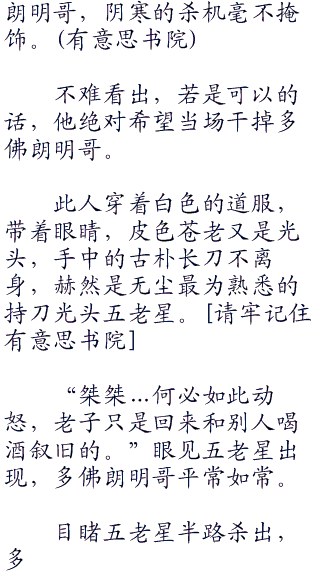 朗明哥，阴寒的杀机毫不掩
饰。(有意思书院)
不难看出，若是可以的
话，他绝对希望当场干掉多
佛朗明哥。
此人穿着白色的道服，
带着眼睛，皮色苍老又是光
头，手中的古朴长刀不离
身，赫然是无尘最为熟悉的
持刀光头五老星。[请牢记住
有意思书院]
“桀桀...何必如此动
怒，老子只是回来和别人喝
酒叙旧的。”眼见五老星出
现，多佛朗明哥平常如常。
目睹五老星半路杀出，
多